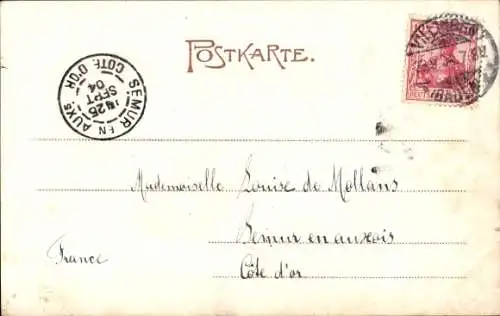 POSTKARTE.
SEMUR EN AUXS
COTE D'OR
25
SEPT
04
Mademoiselle Louise de Mollans
Semur en auxois
Côte d'or
France